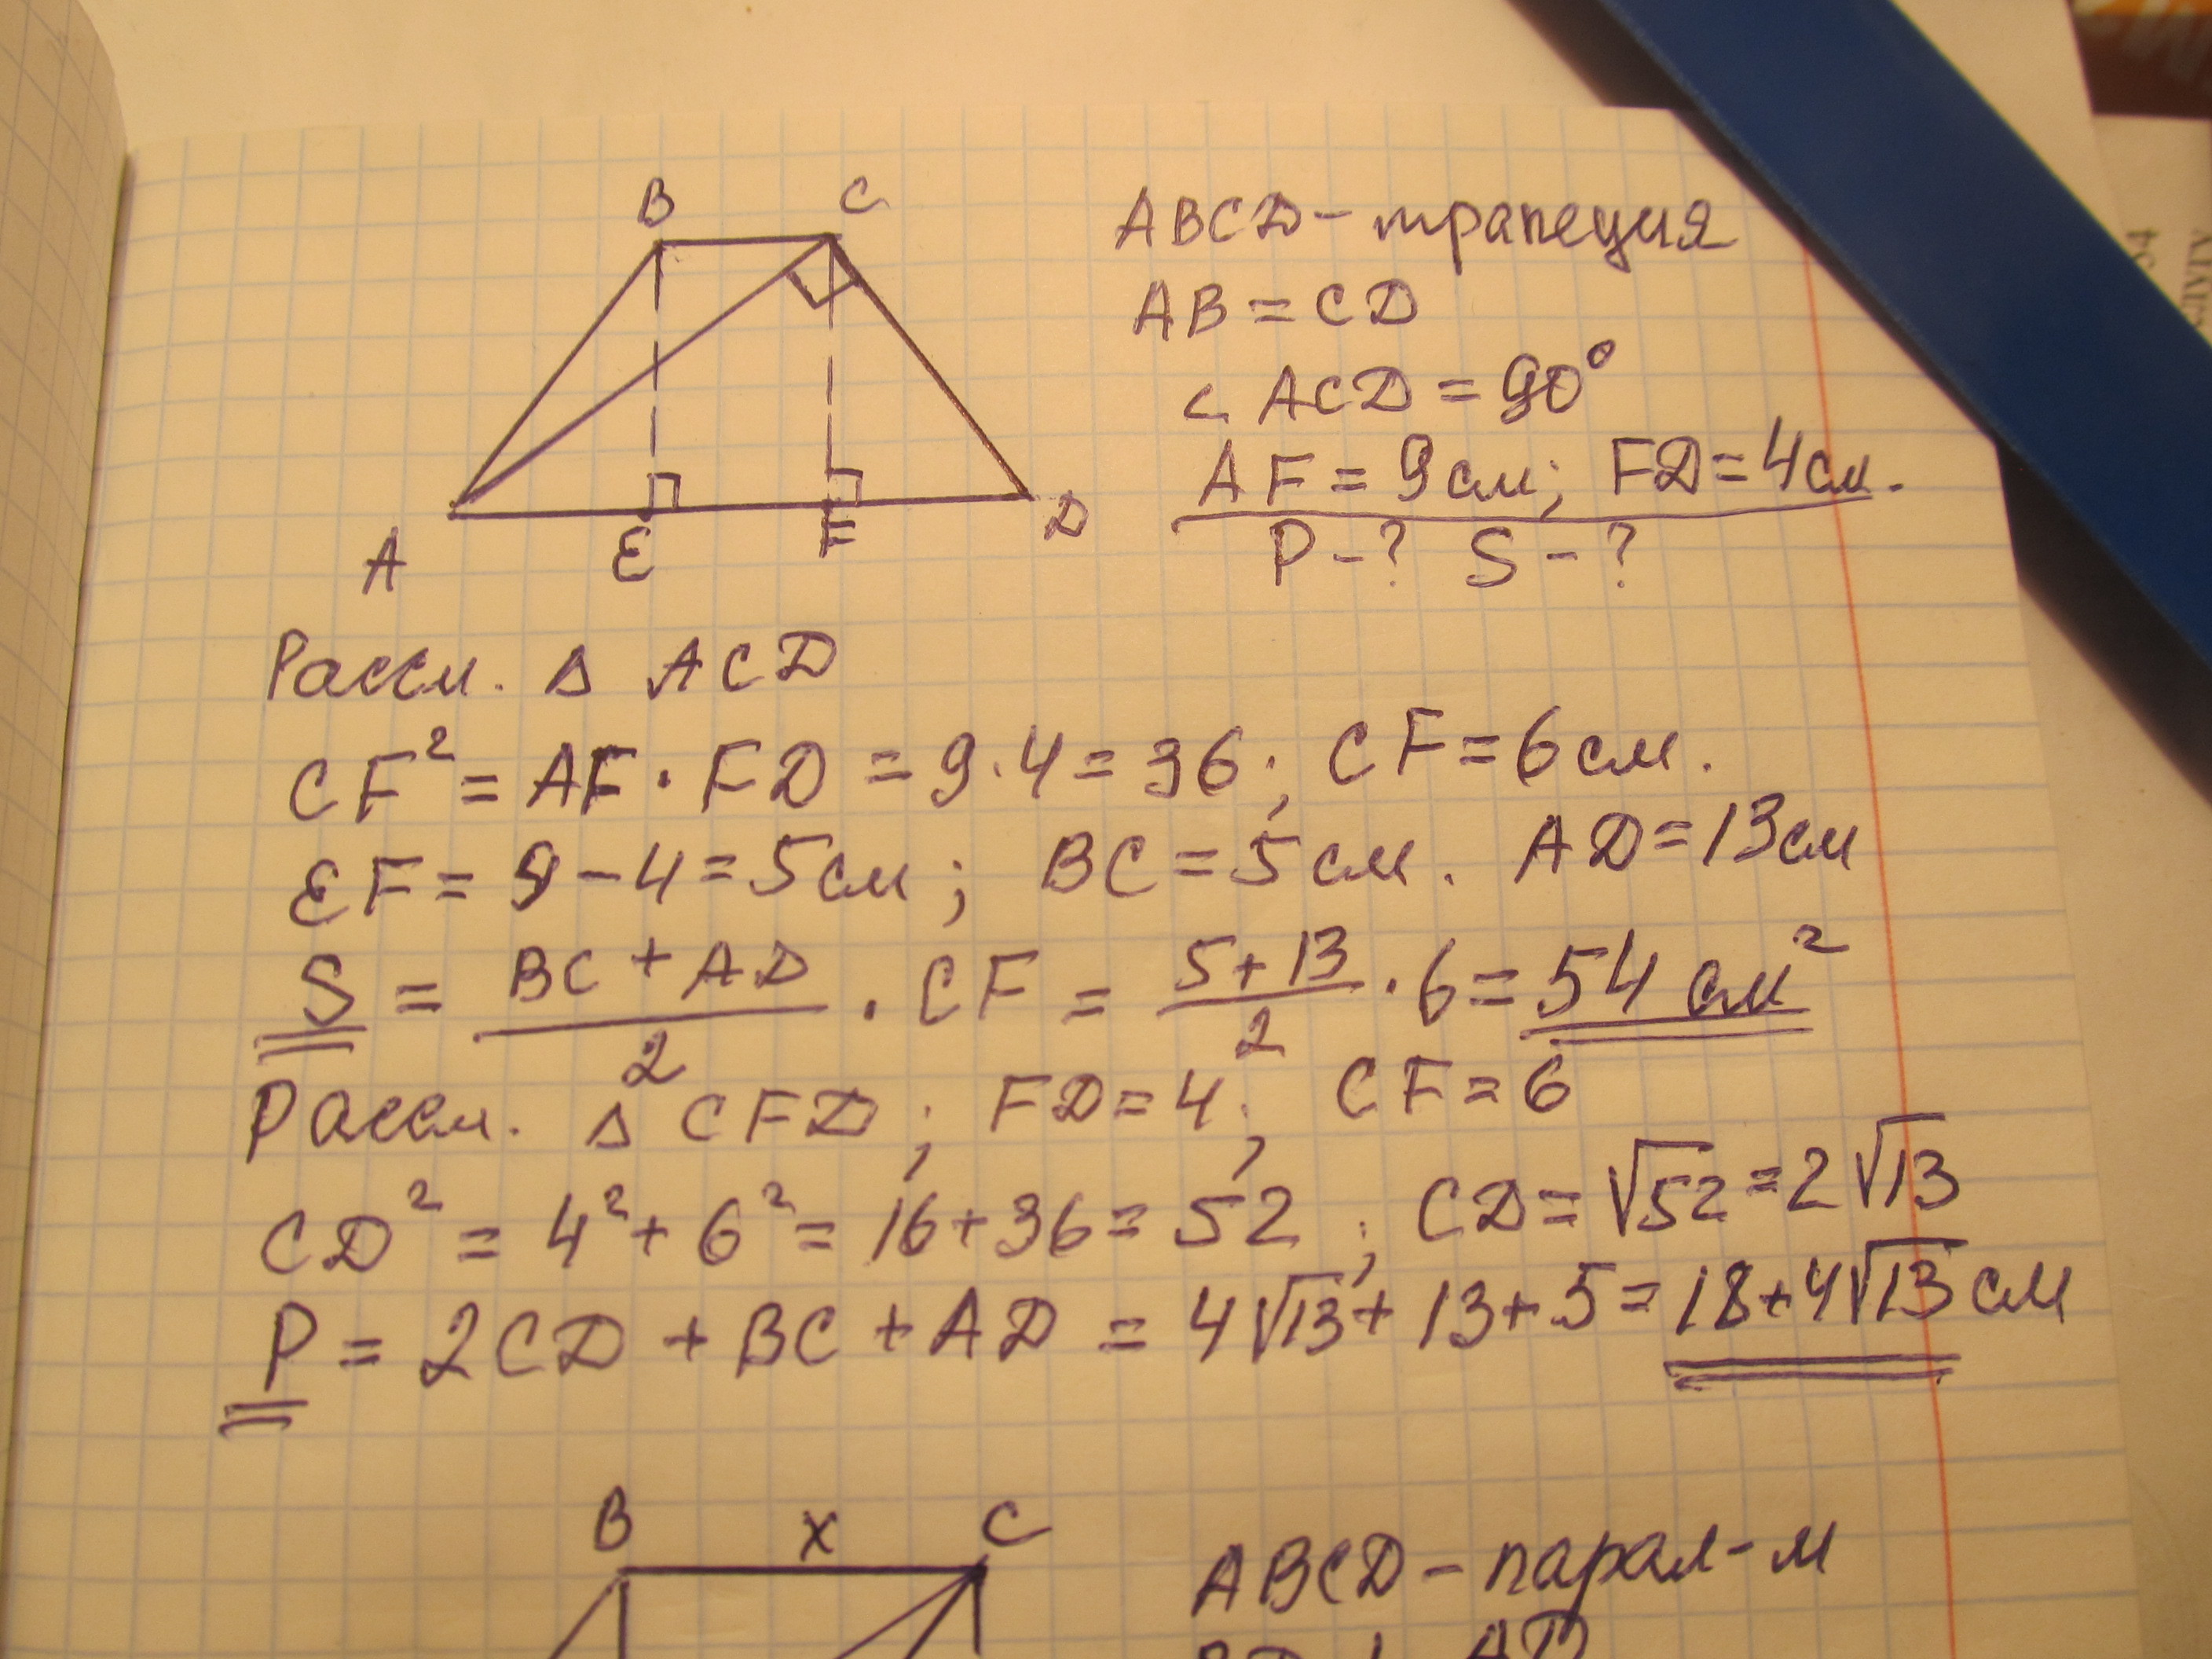 B C
A E F D
ABCD - трапеция
AB = CD
< ACD = 90°
AF = 9см; FD = 4см.
P - ? S - ?
Рассм. Δ ACD
CF² = AF · FD = 9 · 4 = 36; CF = 6 см.
EF = 9 - 4 = 5см; BC = 5 см. AD = 13см
S = (BC + AD)/2 · CF = (5 + 13)/2 · 6 = 54 см²
Рассм. Δ CFD; FD = 4; CF = 6
CD² = 4² + 6² = 16 + 36 = 52; CD = √52 = 2√13
P = 2CD + BC + AD = 4√13 + 13 + 5 = 18 + 4√13 см
B x C
ABCD - парал-м